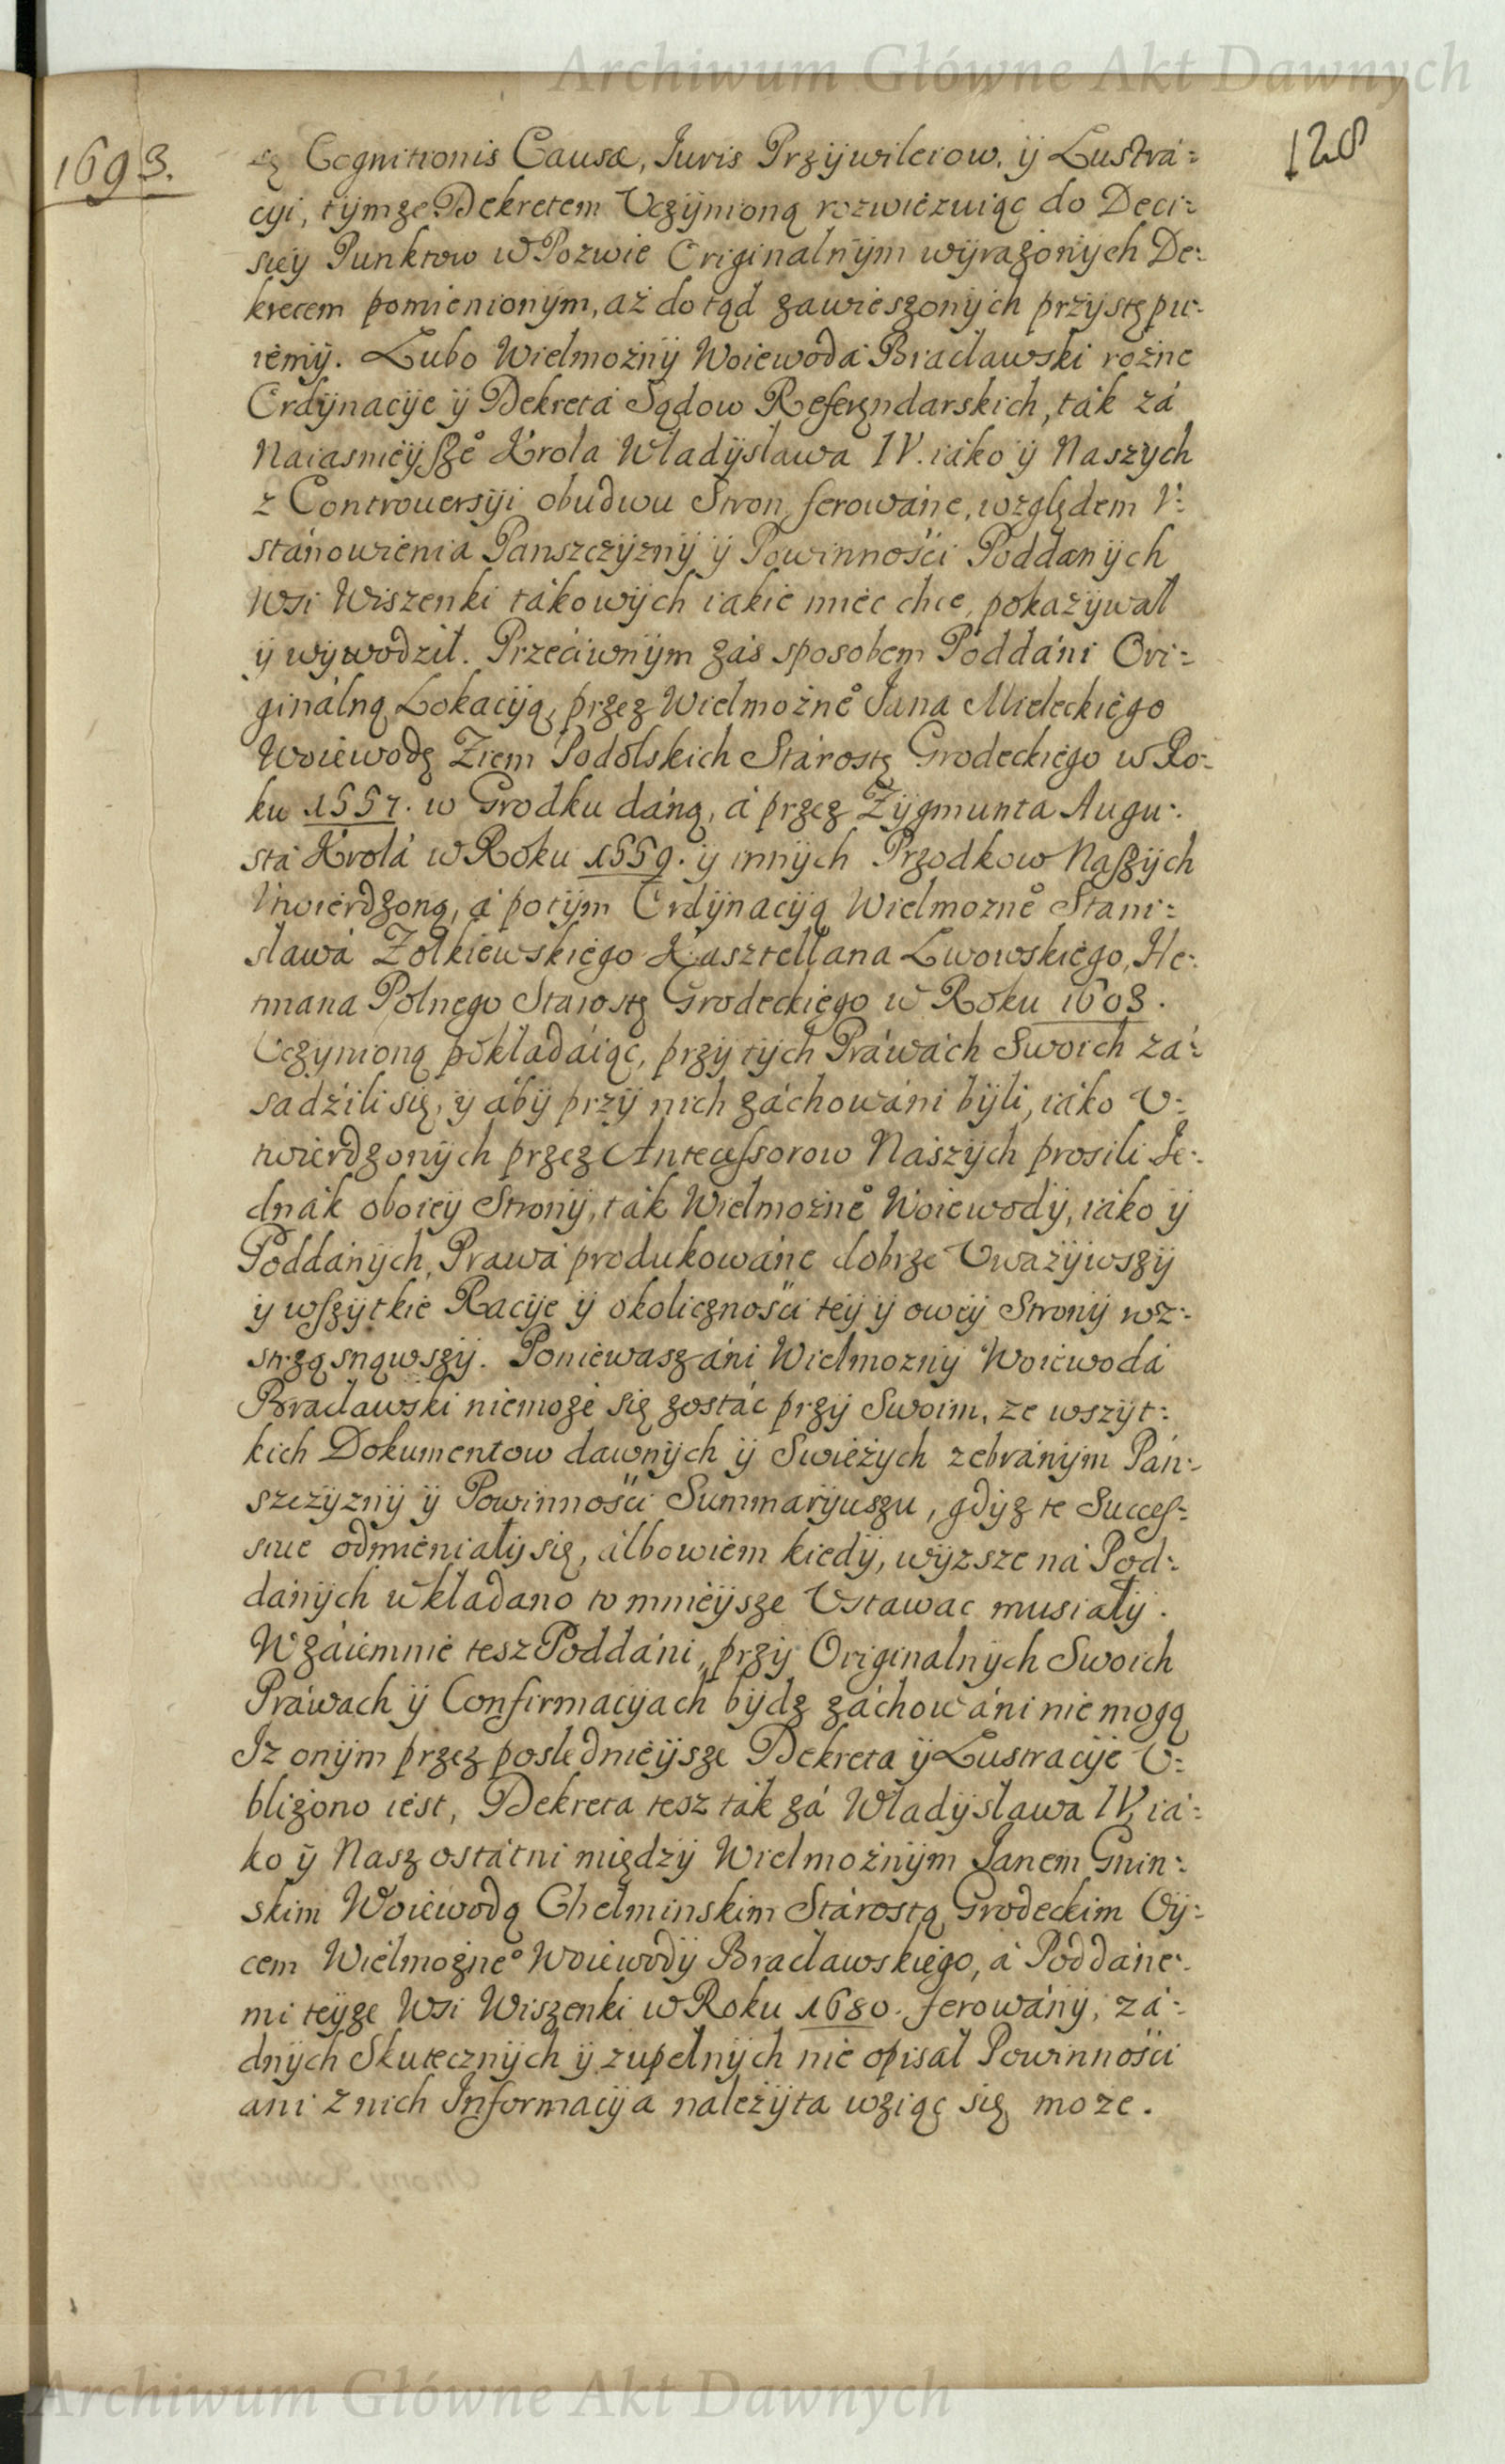 Archiwum Główne Akt Dawnych
1693.
128
cą Cognitionis Causæ, Iuris Przÿwileiow, ÿ Lustrá:
cÿi, tÿmże Dekretem Vczÿnioną rozwiezuiąc do Deci:
siey Punktow w Pozwie Originalnÿm wÿrażonÿch De:
kretem pomienionÿm, aż do tąd zawieszonÿch przÿstępu:
iemÿ. Lubo Wielmożnÿ Woiewodá Bracławski rożne
Ordÿnacÿe ÿ Dekretá Sądow Referendarskich, ták zá
Naiasnieÿszeº Krola Władÿsława IV. iáko ÿ Naszych
z Controuersÿi obudwu Stron ferowáne, względem V:
stánowienia Panszczÿznÿ ÿ Powinnośći Poddanÿch
Wsi Wiszenki tákowÿch iakie miéc chce, pokazÿwał
ÿ wÿwodził. Przeciwnÿm záś sposobem Poddáni Ori:
ginálną Lokacÿą, przez Wielmożneº Jana Mieleckiego
Woiewodę Ziem Podolskich Stárostę Grodeckiego w Ro:
ku 1557. w Grodku dáną, á przez Zÿgmunta Augu:
stá Krolá w Roku 1559. ÿ innÿch Przodkow Naszÿch
Vtwierdzoną, á potÿm Ordÿnacÿą Wielmozneº Stani:
sławá Zołkiewskiego Kasztellana Lwowskiego, He:
tmana Polnego Starostę Grodeckiego w Roku 1603.
Vczÿnioną pokładáiąc, przÿ tÿch Práwách Swoich zá:
sadźili się, ÿ ábÿ przÿ nich záchowáni bÿli, iáko V:
twierdzonÿch przez Antecessorow Naszÿch prosili Je:
dnák oboieÿ Stronÿ, ták Wielmożneº Woiewodÿ, iáko ÿ
Poddánÿch, Prawá produkowáne dobrze Vważÿwszÿ
ÿ wszÿtkie Racÿe ÿ okolicznośći teÿ ÿ oweÿ Stronÿ wz:
strząsnąwszÿ. Poniewasz áni Wielmoznÿ Woiewodá
Bracławski niemoże się zostáć przÿ Swoim, ze wszÿt:
kich Dokumentow dawnÿch ÿ Swieżÿch zebránÿm Pán:
szczÿznÿ ÿ Powinnośći Summarÿuszu, gdÿż te Succes:
siue odmieniałÿ się, álbowiem kiedÿ, wÿzsze ná Pod:
dánÿch wkładano to mnieÿsze Vstawac musiałÿ.
Wzáiemnie tesz Poddáni, przÿ Originalnÿch Swoich
Práwach ÿ Confirmacÿach bÿdz záchowáni nie mogą
Iz onÿm przez poslednieÿsze Dekreta ÿ Lustracÿe V:
bliżono iest, Dekreta tesz ták zá Władÿsława IV, iá:
ko ÿ Nasz ostátni międzÿ Wielmożnÿm Janem Gnin:
skim Woiewodą Chełminskim Stárostą Grodeckim Oÿ:
cem Wielmożneº Woiewodÿ Bracławskiego, á Poddáne:
mi teÿże Wsi Wiszenki w Roku 1680. ferowánÿ, zá:
dnÿch Skutecznÿch ÿ zupełnÿch nie opisał Powinnośći
ani z nich Informacÿa należÿta wziąc się może.
Archiwum Główne Akt Dawnych